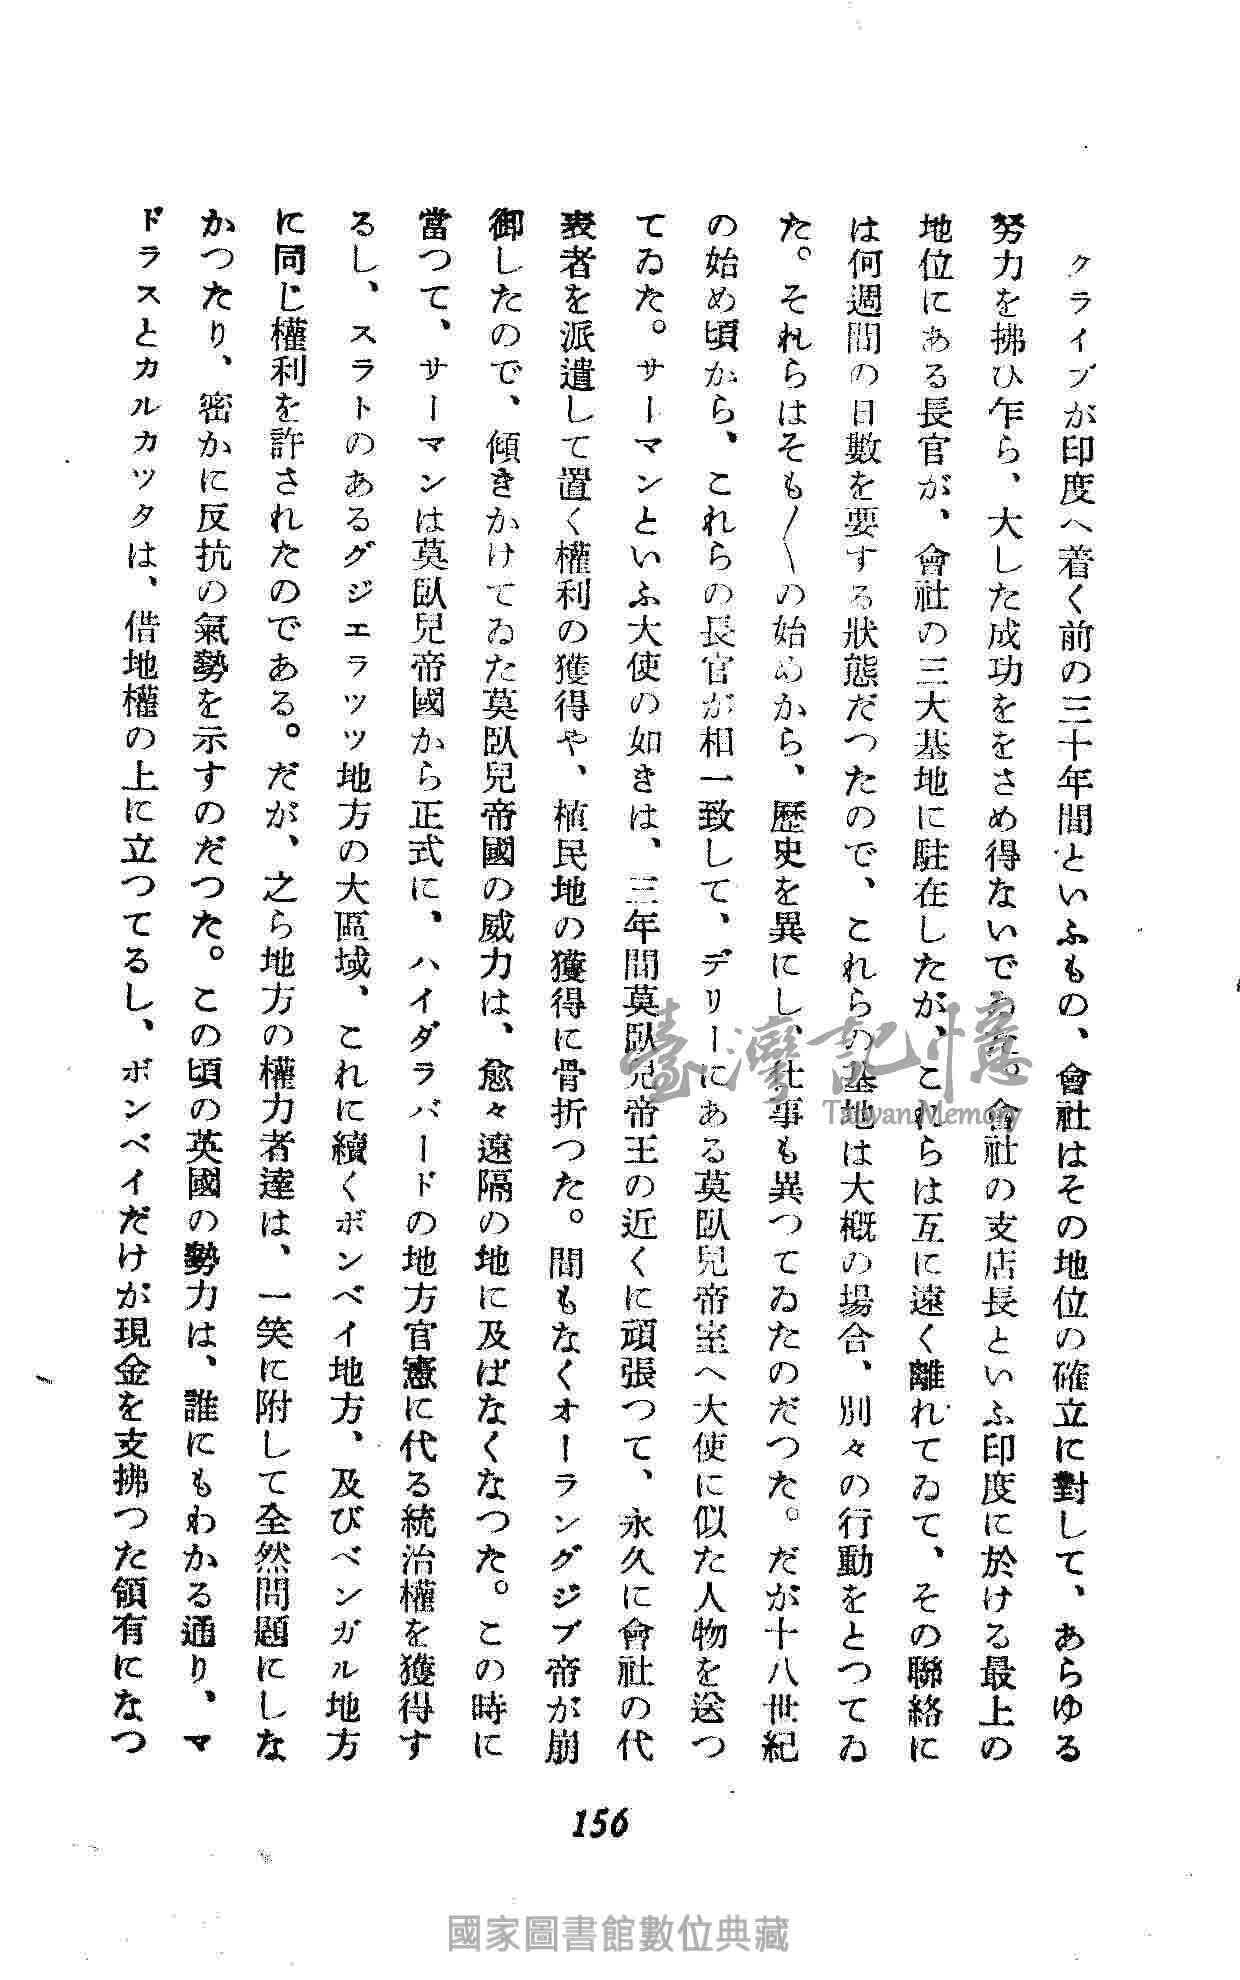 クライブが印度へ着く前の三十年間といふもの、會社はその地位の確立に對して、あらゆる
努力を拂ひ乍ら、大した成功ををさめ得ないでゐた。會社の支店長といふ印度に於ける最上の
地位にある長官が、會社の三大基地に駐在したが、これらは互に遠く離れてゐて、その聯絡に
は何週間の日數を要する狀態だつたので、これらの基地は大概の場合、別々の行動をとつてゐ
た。それらはそも〱の始めから、歷史を異にし、仕事も異つてゐたのだつた。だが十八世紀
の始め頃から、これらの長官が相一致して、デリーにある莫臥兒帝室へ大使に似た人物を送つ
てゐた。サーマンといふ大使の如きは、三年間莫臥兒帝王の近くに頑張つて、永久に會社の代
表者を派遣して置く權利の獲得や、植民地の獲得に骨折つた。間もなくオーラングジブ帝が崩
御したので、傾きかけてゐた莫臥兒帝國の威力は、愈々遠隔の地に及ばなくなつた。この時に
當つて、サーマンは莫臥兒帝國から正式に、ハイダラバードの地方官憲に代る統治權を獲得す
るし、スラトのあるグジエラッツ地方の大區域、これに續くボンベイ地方、及びベンガル地方
に同じ權利を許されたのである。だが、之ら地方の權力者達は、一笑に附して全然問題にしな
かつたり、密かに反抗の氣勢を示すのだつた。この頃の英國の勢力は、誰にもわかる通り、マ
ドラスとカルカツタは、借地權の上に立つてるし、ボンベイだけが現金を支拂つた領有になつ
156
臺灣記憶
Taiwan Memory
國家圖書館數位典藏